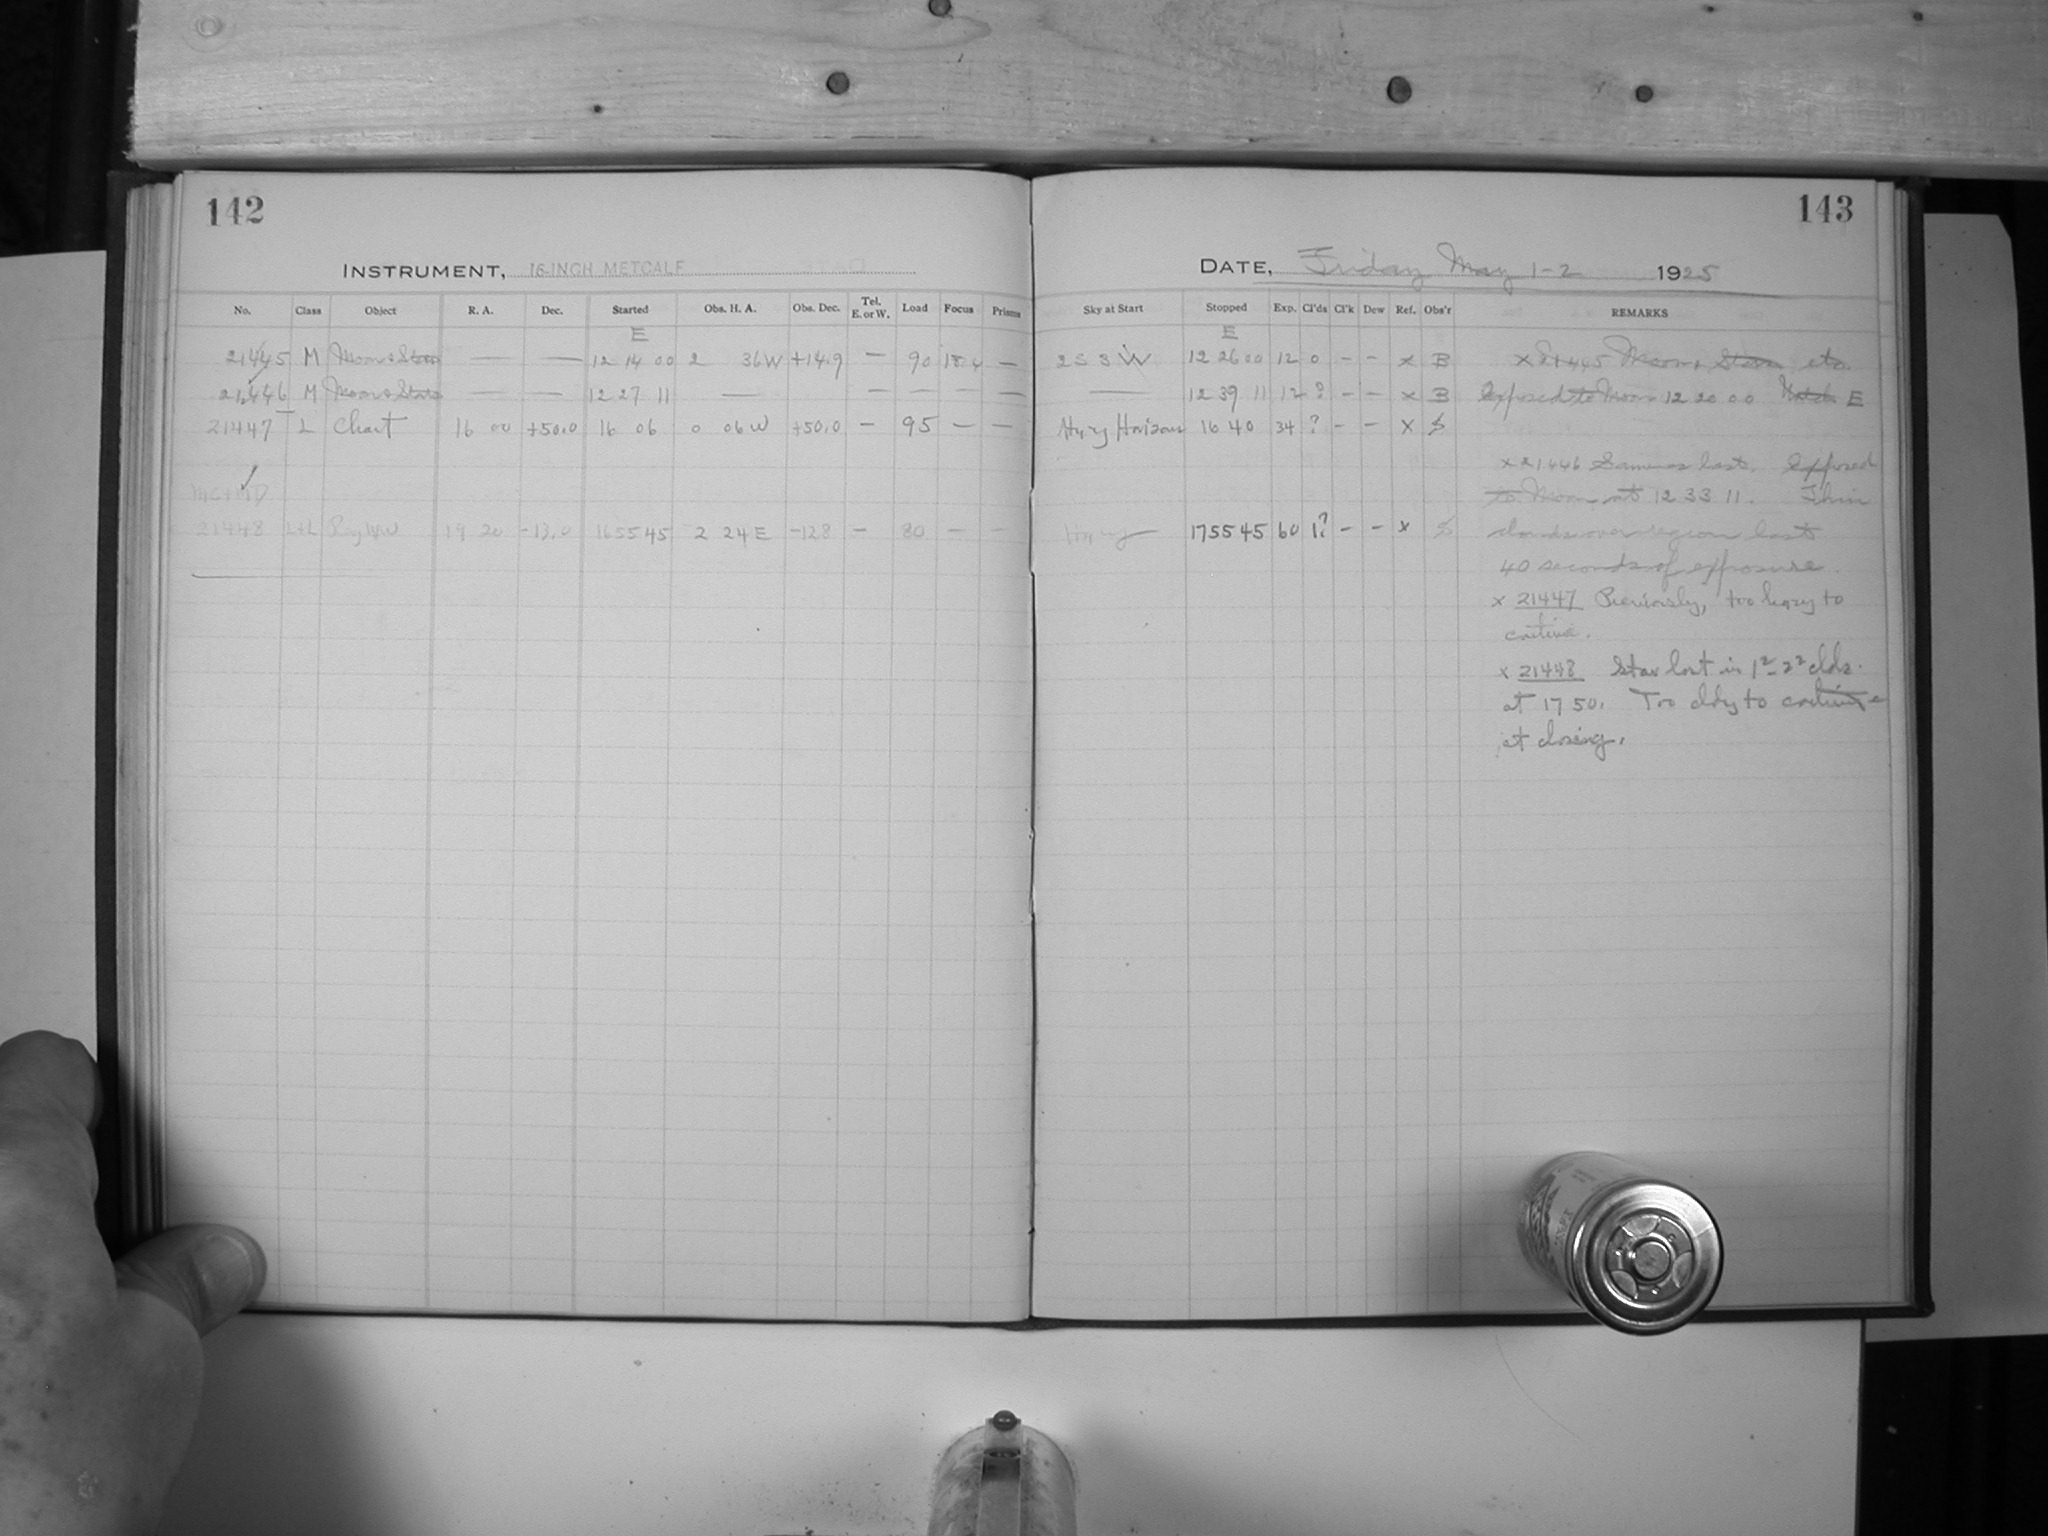 142
INSTRUMENT, 16-INCH METCALF
No. Class Object R. A. Dec. Started Obs. H. A. Obs. Dec. Tel. E. or W. Load Focus Prisms
E
21445 M Moon & Stars — — 12 14 00 2 36 W +14.9 — 90 18.4 —
21446 M Moon & Stars — — 12 27 11 — — — — —
21447 L Chart 16 00 +50.0 16 06 0 06 W +50.0 — 95 — —
21448 L+L Rg 19 20 -13.0 16 55 45 2 24 E -12.8 — 80 — —
143
DATE, Friday May 1-2 1925
Sky at Start Stopped Exp. Cl'ds Cl'k Dew Ref. Obs'r REMARKS
E
2 S 3 W 12 26 00 12 0 – – x B
— 12 39 11 12 ? – – x B
Hazy Horizon 16 40 34 ? – – x S
Hazy 17 55 45 60 1? – – x S
x 21445 Moon & Stars etc.
Exposed to Moon 12 20 00 E
x 21446 Same as last. Exposed
to Moon at 12 33 11. Thin
clouds over region last
40 seconds of exposure.
x 21447 Previously, too hazy to
continue.
x 21448 Star lost in 1²-2² clds.
at 17 50. Too cldy to continue
at closing.